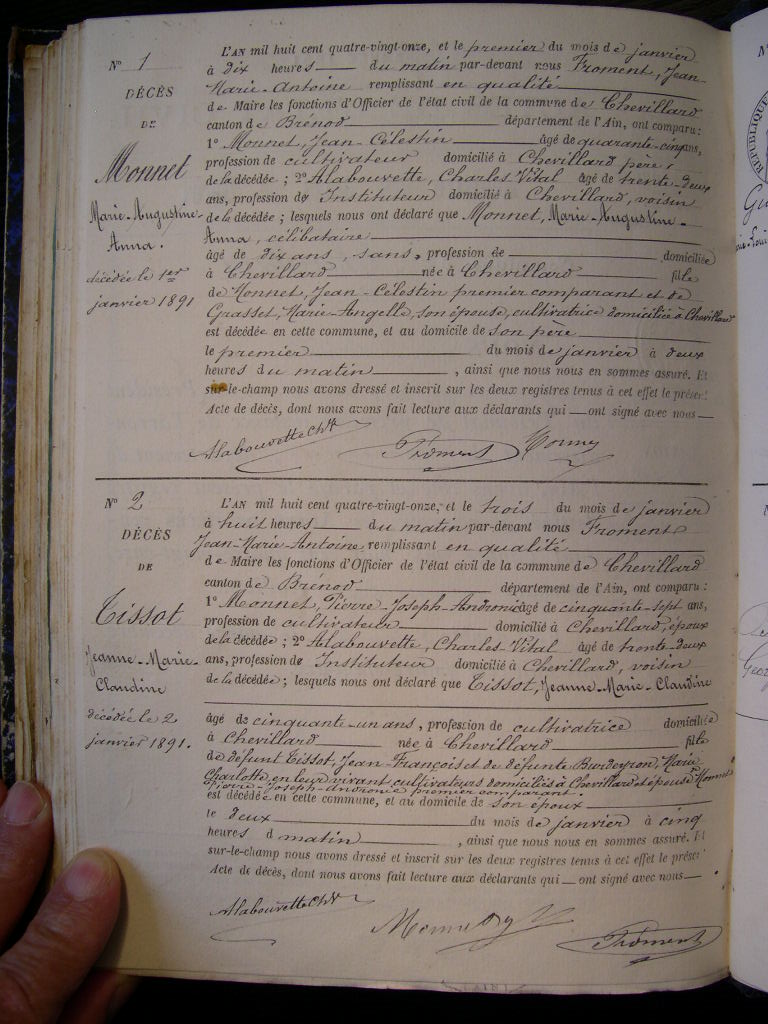 N° 1
DÉCÈS
DE
Monnet
Marie-Augustine-
Anna.
décédée le 1er
janvier 1891
L'AN mil huit cent quatre-vingt-onze, et le premier du mois de janvier
à dix heures du matin par-devant nous Froment, Jean-
Marie-Antoine remplissant en qualité
de Maire les fonctions d'Officier de l'état civil de la commune de Chevillard
canton de Brénod département de l'Ain, ont comparu :
1° Monnet, Jean-Célestin âgé de quarante-cinq ans,
profession de cultivateur domicilié à Chevillard père
de la décédée ; 2° Alabouvette, Charles Vital âgé de trente-deux
ans, profession de Instituteur domicilié à Chevillard, voisin
de la décédée ; lesquels nous ont déclaré que Monnet, Marie-Augustine-
Anna, célibataire
âgé de dix ans, sans, profession de domicilié
à Chevillard née à Chevillard fille
de Monnet, Jean-Célestin premier comparant et de
Grasset, Marie-Angelle, son épouse, cultivatrice domiciliée à Chevillard
est décédée en cette commune, et au domicile de son père
le premier du mois de janvier à deux
heures du matin, ainsi que nous nous en sommes assuré. Et
sur-le-champ nous avons dressé et inscrit sur les deux registres tenus à cet effet le présent
Acte de décès, dont nous avons fait lecture aux déclarants qui ont signé avec nous
Alabouvette Ch. Froment Monney
N° 2
DÉCÈS
DE
Tissot
Jeanne-Marie-
Claudine
décédée le 2
janvier 1891.
L'AN mil huit cent quatre-vingt-onze, et le trois du mois de janvier
à huit heures du matin par-devant nous Froment
Jean-Marie-Antoine, remplissant en qualité
de Maire les fonctions d'Officier de l'état civil de la commune de Chevillard
canton de Brénod département de l'Ain, ont comparu :
1° Monnet, Pierre-Joseph-Andronic âgé de cinquante-sept ans,
profession de cultivateur domicilié à Chevillard, époux
de la décédée ; 2° Alabouvette, Charles Vital âgé de trente-deux
ans, profession de Instituteur domicilié à Chevillard, voisin
de la décédée ; lesquels nous ont déclaré que Tissot, Jeanne-Marie-Claudine
âgé de cinquante-un ans, profession de cultivatrice domiciliée
à Chevillard née à Chevillard fille
de défunt Tissot, Jean-François et de défunte Burdeyron, Marie
Charlotte, en leur vivant cultivateurs domiciliés à Chevillard et épouse Monnet
Pierre-Joseph-Andronic premier comparant.
est décédée en cette commune, et au domicile de son époux
le deux du mois de janvier à cinq
heures d matin, ainsi que nous nous en sommes assuré. Et
sur-le-champ nous avons dressé et inscrit sur les deux registres tenus à cet effet le présent
Acte de décès, dont nous avons fait lecture aux déclarants qui ont signé avec nous
Alabouvette Ch. Froment